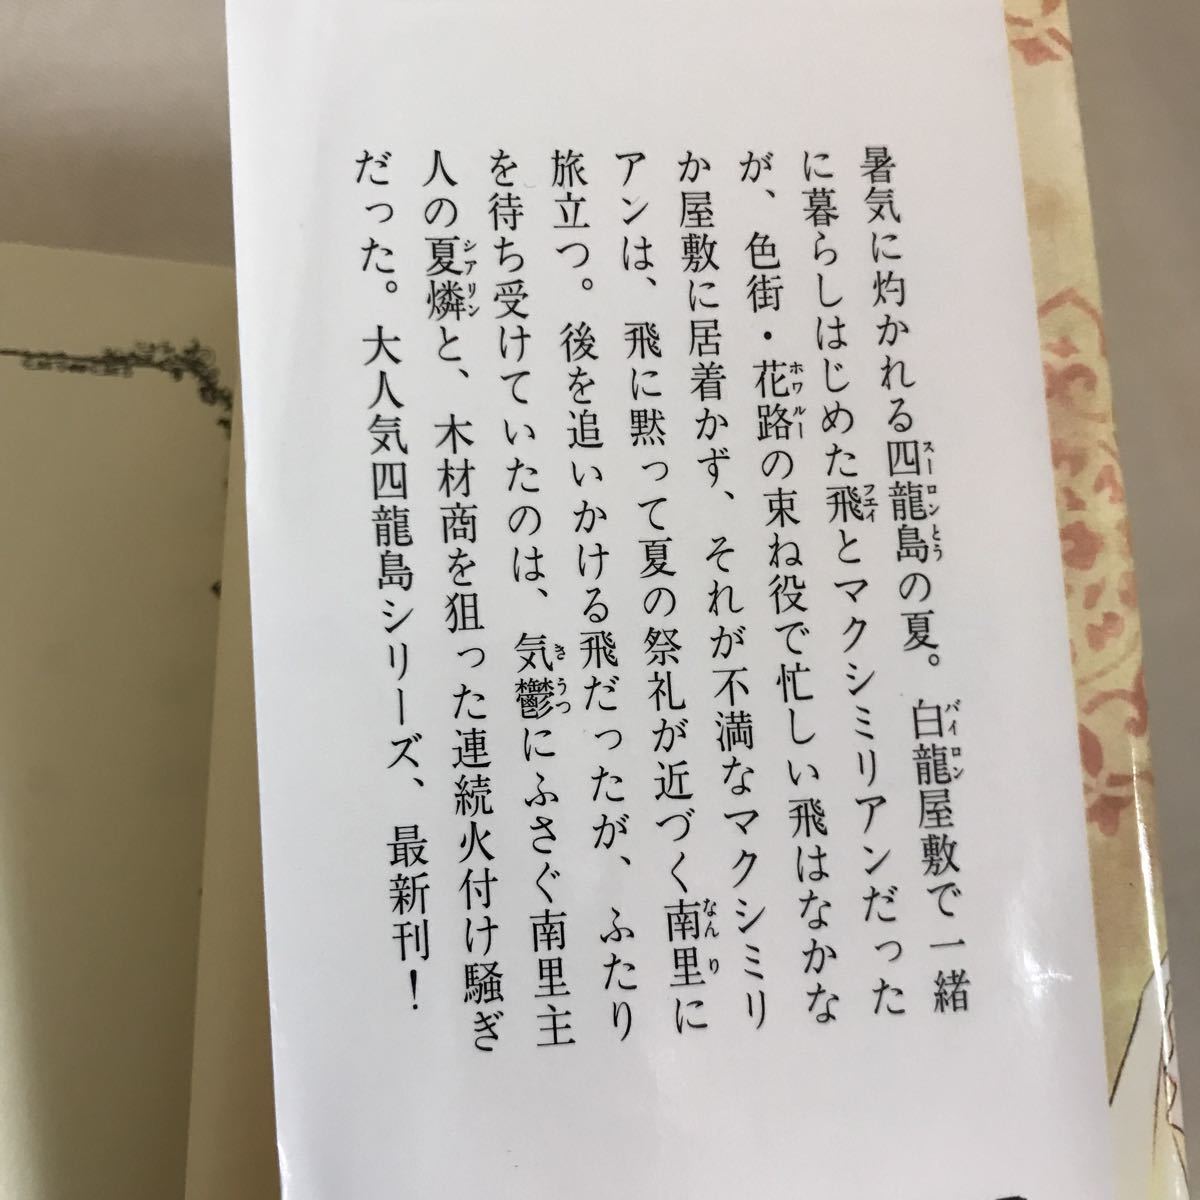 暑気に灼かれる四龍島の夏。白龍屋敷で一緒
に暮らしはじめた飛とマクシミリアンだった
が、色街・花路の束ね役で忙しい飛はなかな
か屋敷に居着かず、それが不満なマクシミリ
アンは、飛に黙って夏の祭礼が近づく南里に
旅立つ。後を追いかける飛だったが、ふたり
を待ち受けていたのは、気鬱にふさぐ南里主
人の夏燐と、木材商を狙った連続火付け騒ぎ
だった。大人気四龍島シリーズ、最新刊！